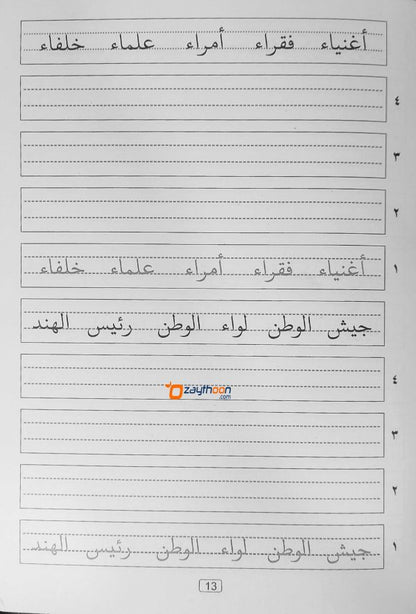 أغنياء فقراء أمراء علماء خلفاء
٤
٣
٢
أغنياء فقراء أمراء علماء خلفاء ١
جيش الوطن لواء الوطن رئيس الهند
٤
zaythoon.com
٣
٢
جيش الوطن لواء الوطن رئيس الهند ١
13